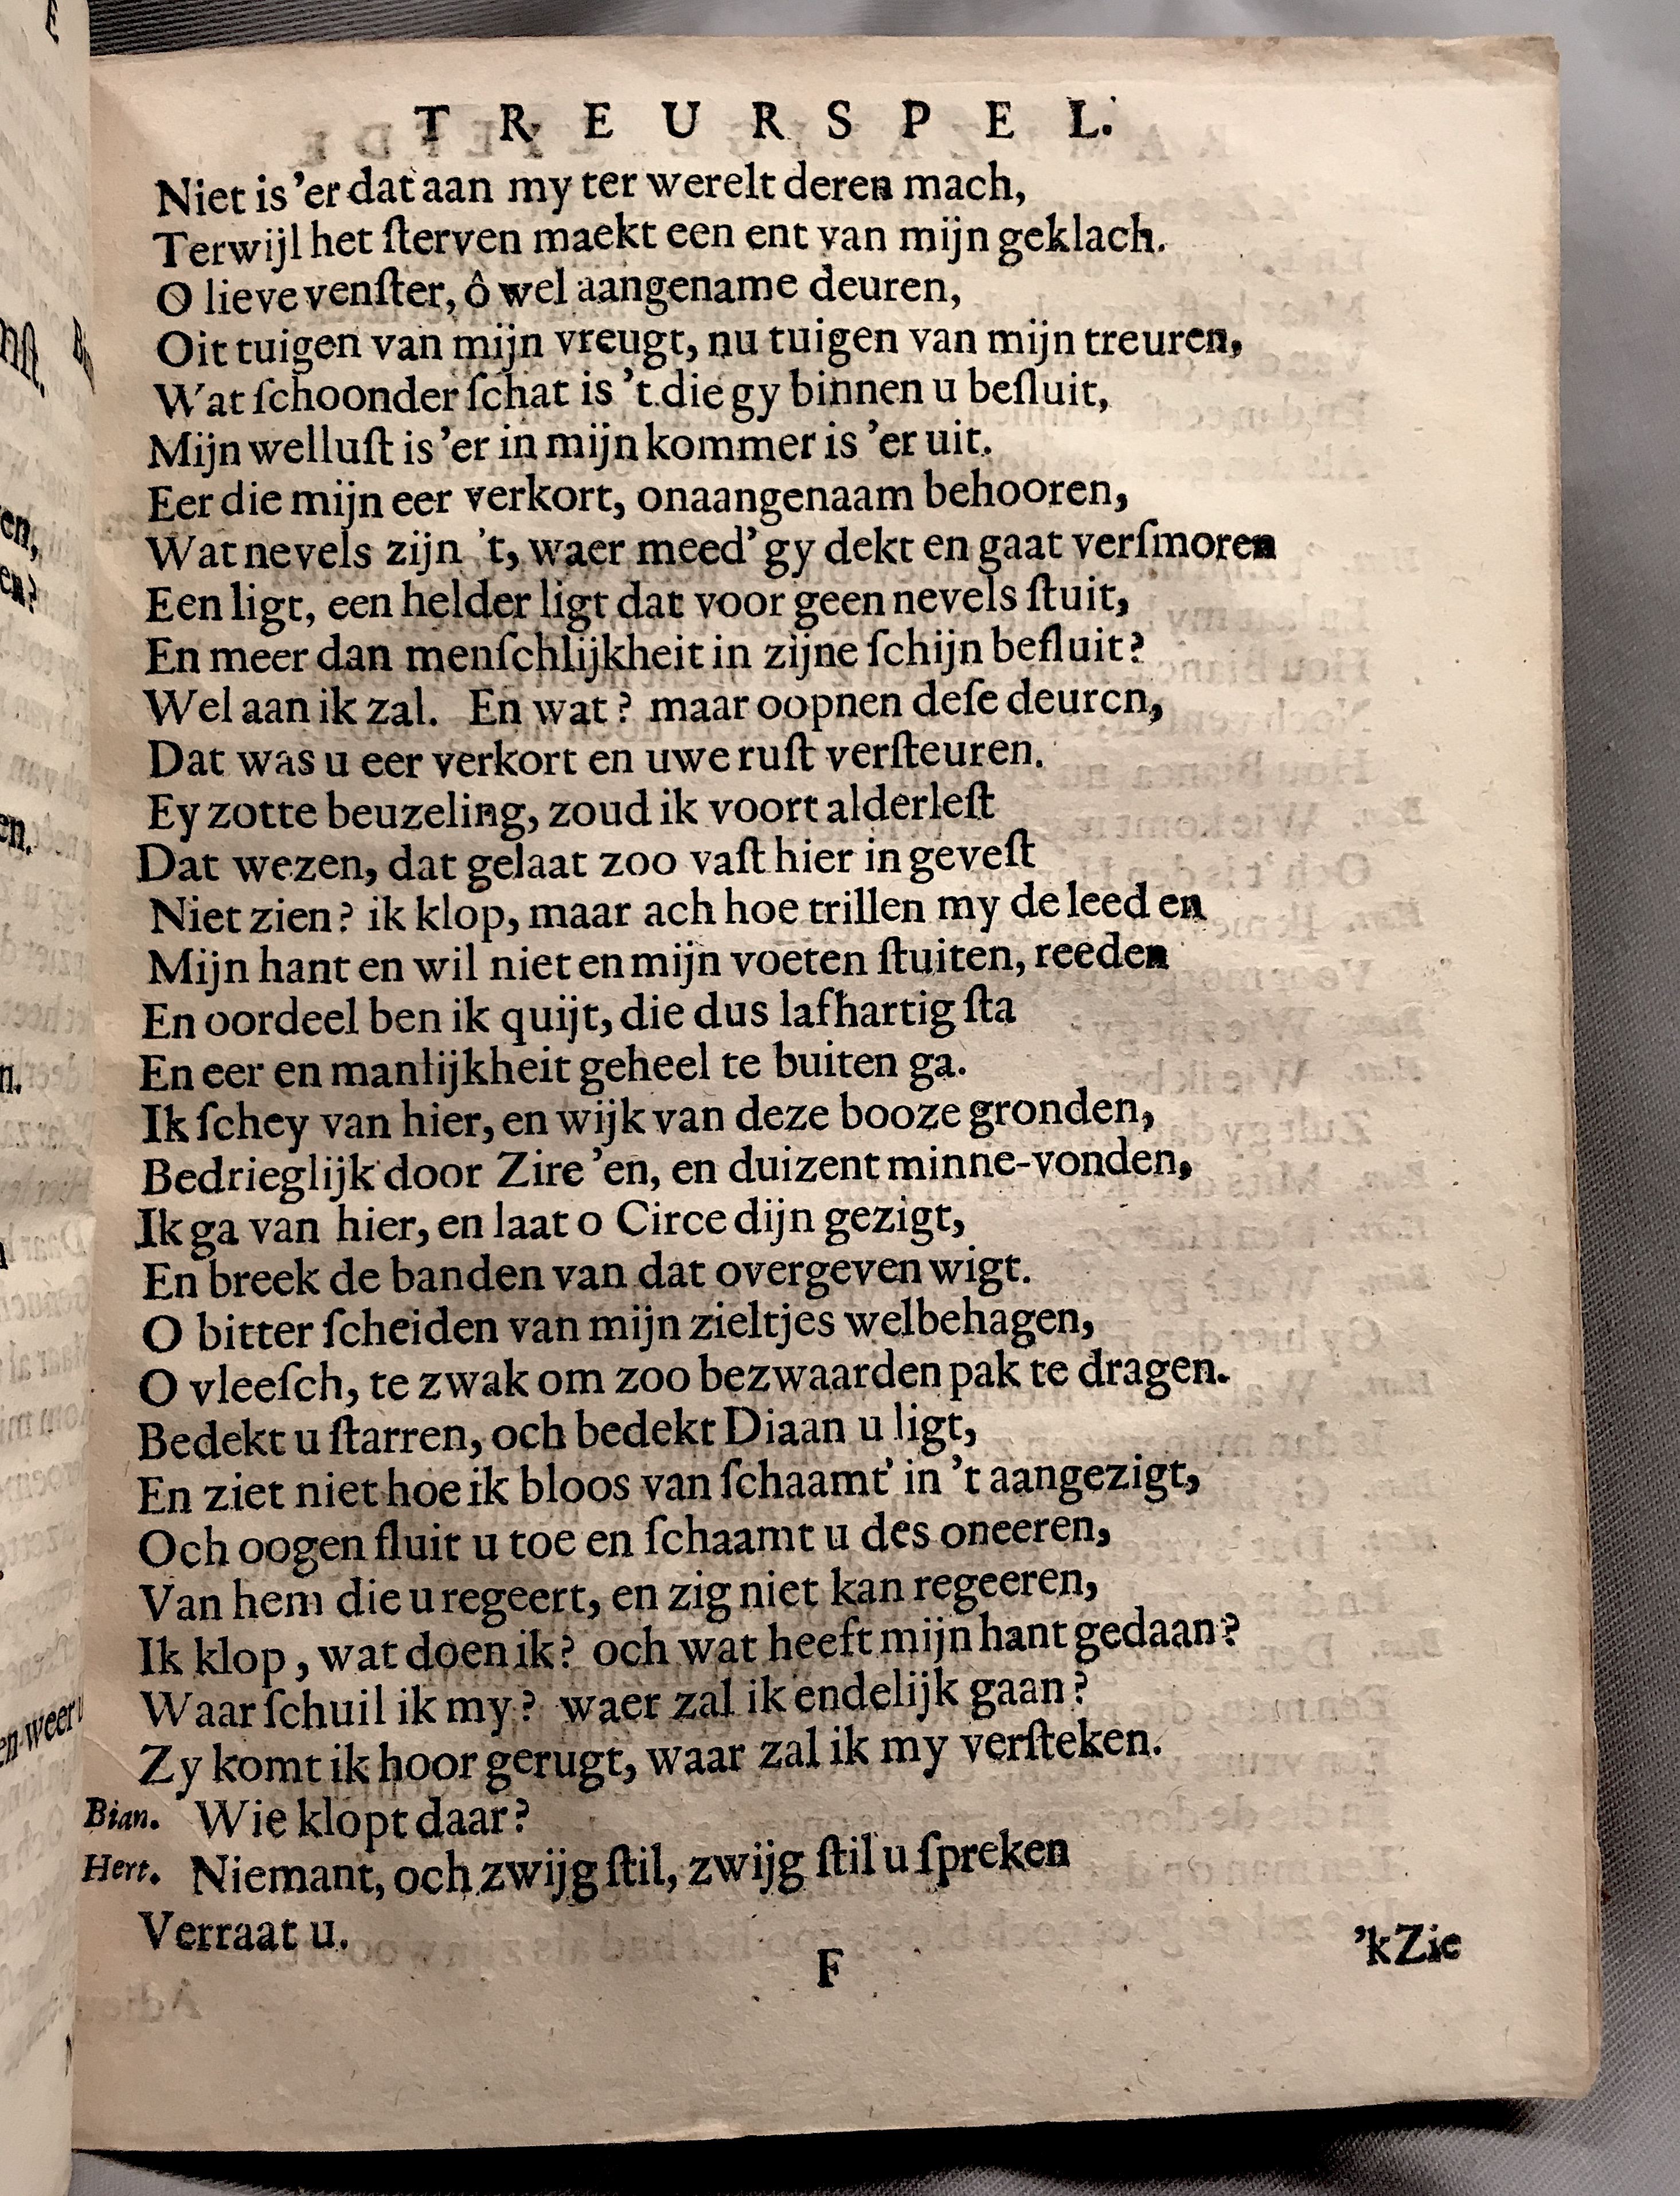 TREURSPEL.
Niet is 'er dat aan my ter werelt deren mach,
Terwijl het ſterven maekt een ent van mijn geklach.
O lieve venſter, ô wel aangename deuren,
Oit tuigen van mijn vreugt, nu tuigen van mijn treuren,
Wat ſchoonder ſchat is 't die gy binnen u beſluit,
Mijn welluſt is 'er in mijn kommer is 'er uit.
Eer die mijn eer verkort, onaangenaam behooren,
Wat nevels zijn 't, waer meed' gy dekt en gaat verſmoren
Een ligt, een helder ligt dat voor geen nevels ſtuit,
En meer dan menſchlijkheit in zijne ſchijn beſluit?
Wel aan ik zal. En wat? maar oopnen deſe deuren,
Dat was u eer verkort en uwe ruſt verſteuren.
Ey zotte beuzeling, zoud ik voort alderleſt
Dat wezen, dat gelaat zoo vaſt hier in geveſt
Niet zien? ik klop, maar ach hoe trillen my de leed en
Mijn hant en wil niet en mijn voeten ſtuiten, reeden
En oordeel ben ik quijt, die dus lafhartig ſta
En eer en manlijkheit geheel te buiten ga.
Ik ſchey van hier, en wijk van deze booze gronden,
Bedrieglijk door Zire 'en, en duizent minne-vonden,
Ik ga van hier, en laat o Circe dijn gezigt,
En breek de banden van dat overgeven wigt.
O bitter ſcheiden van mijn zieltjes welbehagen,
O vleeſch, te zwak om zoo bezwaarden pak te dragen.
Bedekt u ſtarren, och bedekt Diaan u ligt,
En ziet niet hoe ik bloos van ſchaamt' in 't aangezigt,
Och oogen ſluit u toe en ſchaamt u des oneeren,
Van hem die u regeert, en zig niet kan regeeren,
Ik klop, wat doen ik? och wat heeft mijn hant gedaan?
Waar ſchuil ik my? waer zal ik endelijk gaan?
Zy komt ik hoor gerugt, waar zal ik my verſteken.
Bian. Wie klopt daar?
Hert. Niemant, och zwijg ſtil, zwijg ſtil u ſpreken
Verraat u.
F
'k Zie